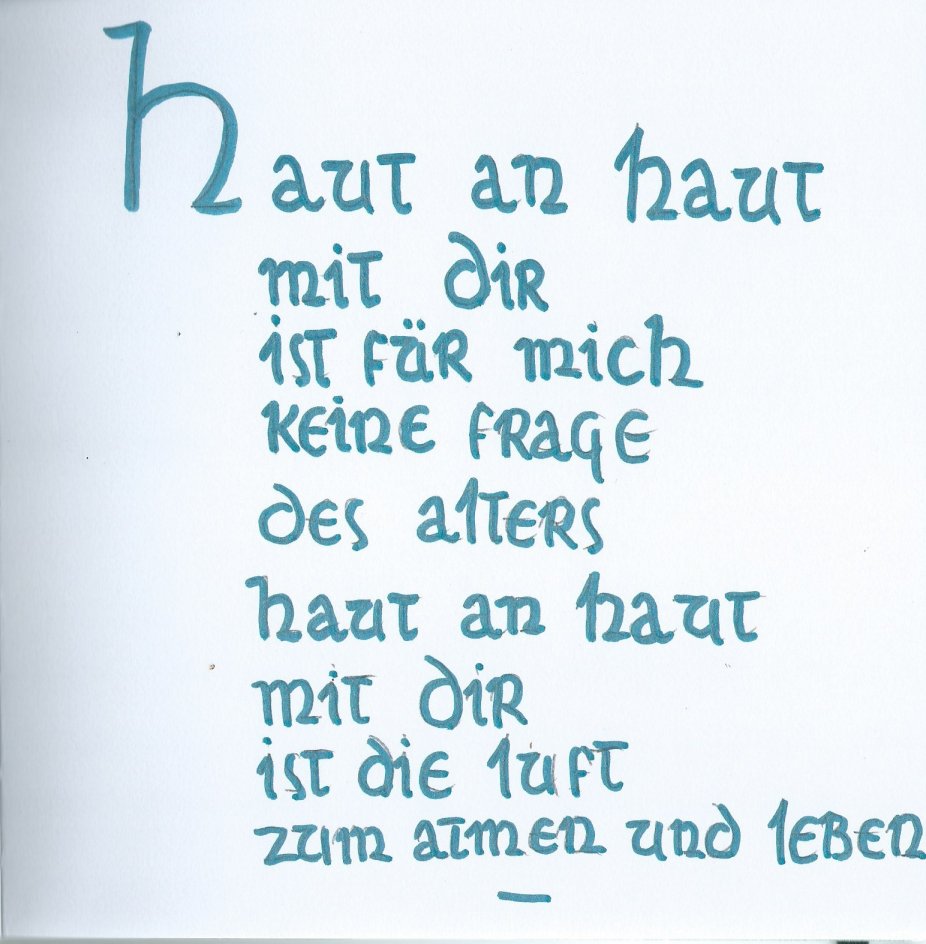 haut an haut
mit dir
ist für mich
keine frage
des alters
haut an haut
mit dir
ist die luft
zum atmen und leben